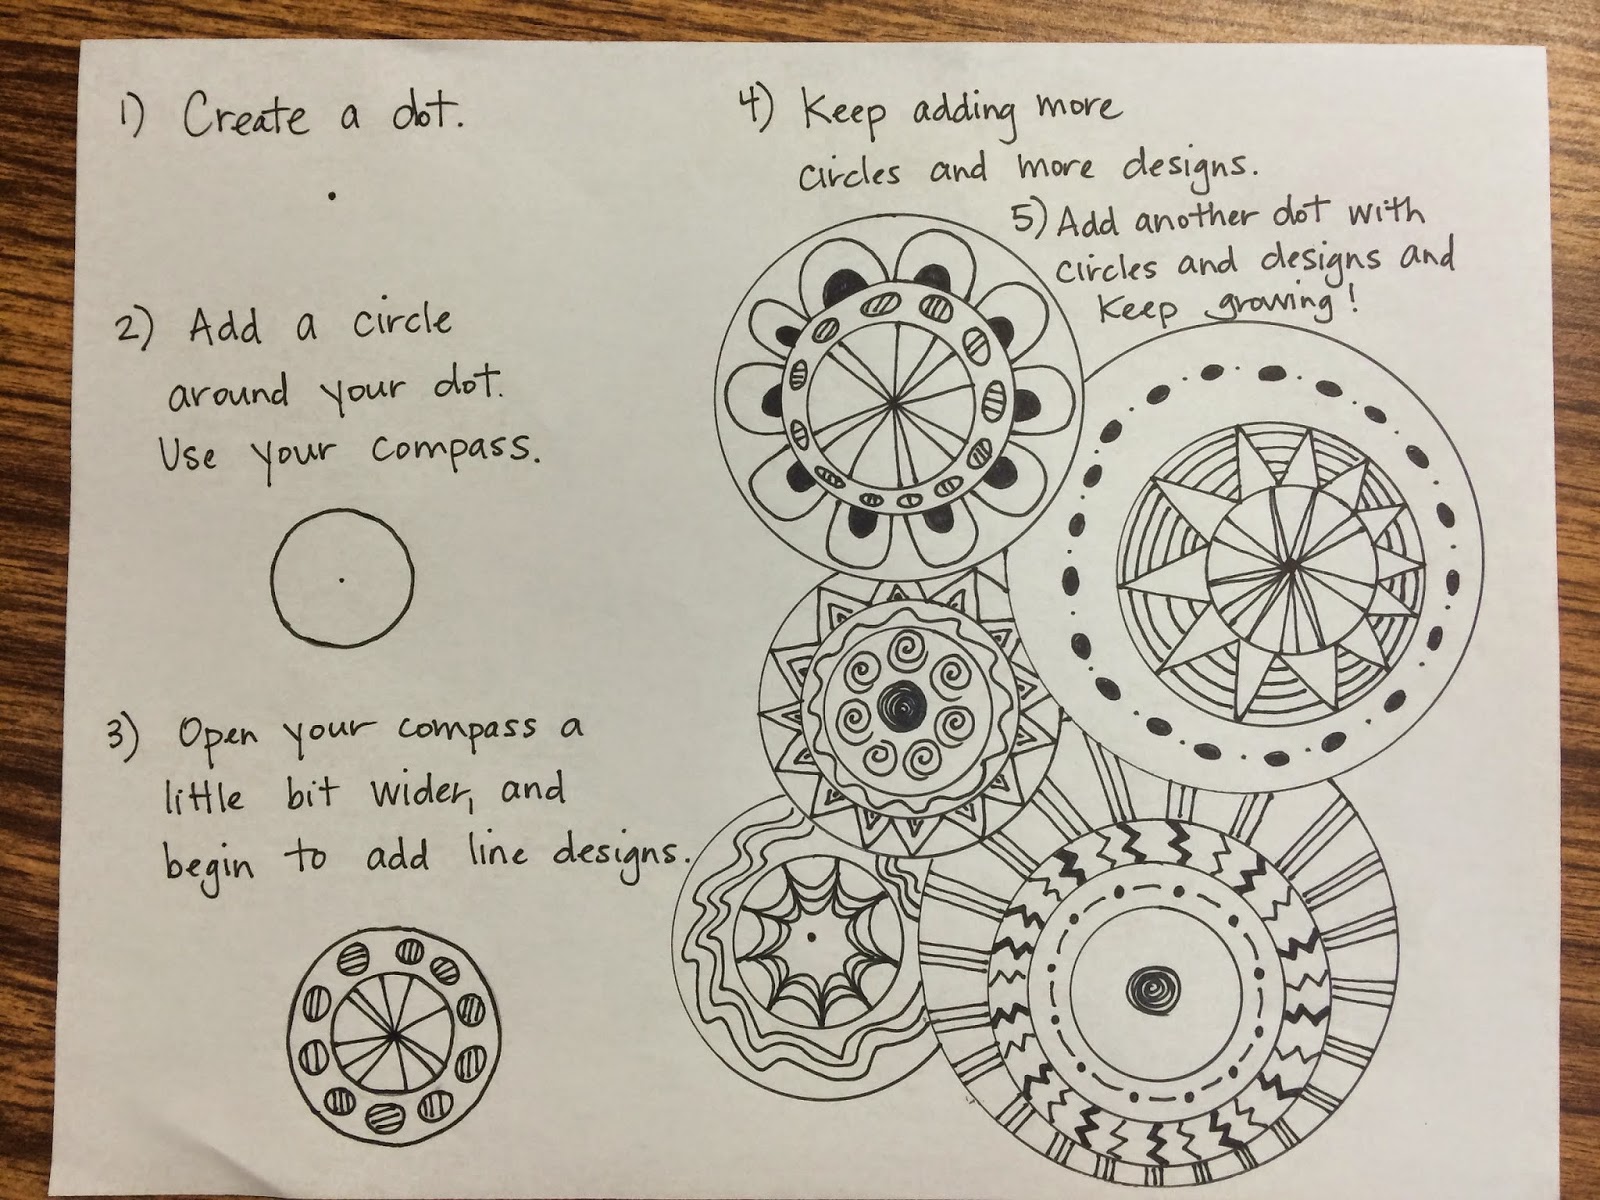 1) Create a dot.
2) Add a circle
around your dot.
Use your compass.
3) Open your compass a
little bit wider, and
begin to add line designs.
4) Keep adding more
circles and more designs.
5) Add another dot with
circles and designs and
keep growing!